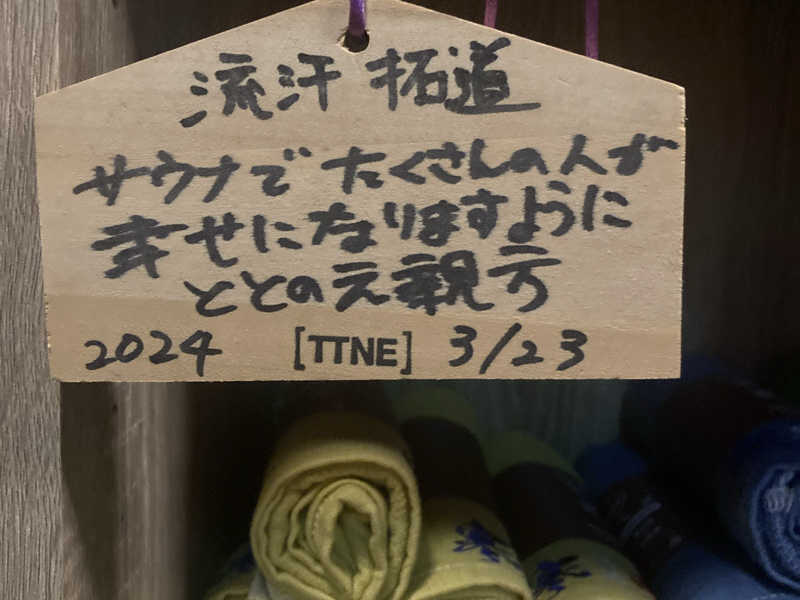 流汗 拓道
サウナでたくさんの人が
幸せになりますように
ととのえ親方
2024 [TTNE] 3/23